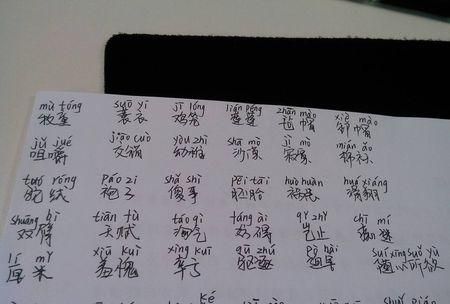 mù tóng suō yī jī lóng lián péng zhān mào xiè mào
牧童 蓑衣 鸡笼 莲蓬 毡帽 卸帽
jǔ jué jiāo cuò yòu zhì shā mò jì mò mián ǎo
咀嚼 交错 幼稚 沙漠 寂寞 棉袄
tuó róng páo zi shǎ shì pēi tāi huò huàn huá xiáng
驼绒 袍子 傻事 胚胎 祸患 滑翔
shuāng bì tiān fù táo qì fáng ài qǐ zhǐ chī mí
双臂 天赋 淘气 妨碍 岂止 痴迷
lí mǐ xiū kuì xìng kuī qū zhú pò hài suí xīn suǒ yù
厘米 羞愧 幸亏 驱逐 迫害 随心所欲
ké